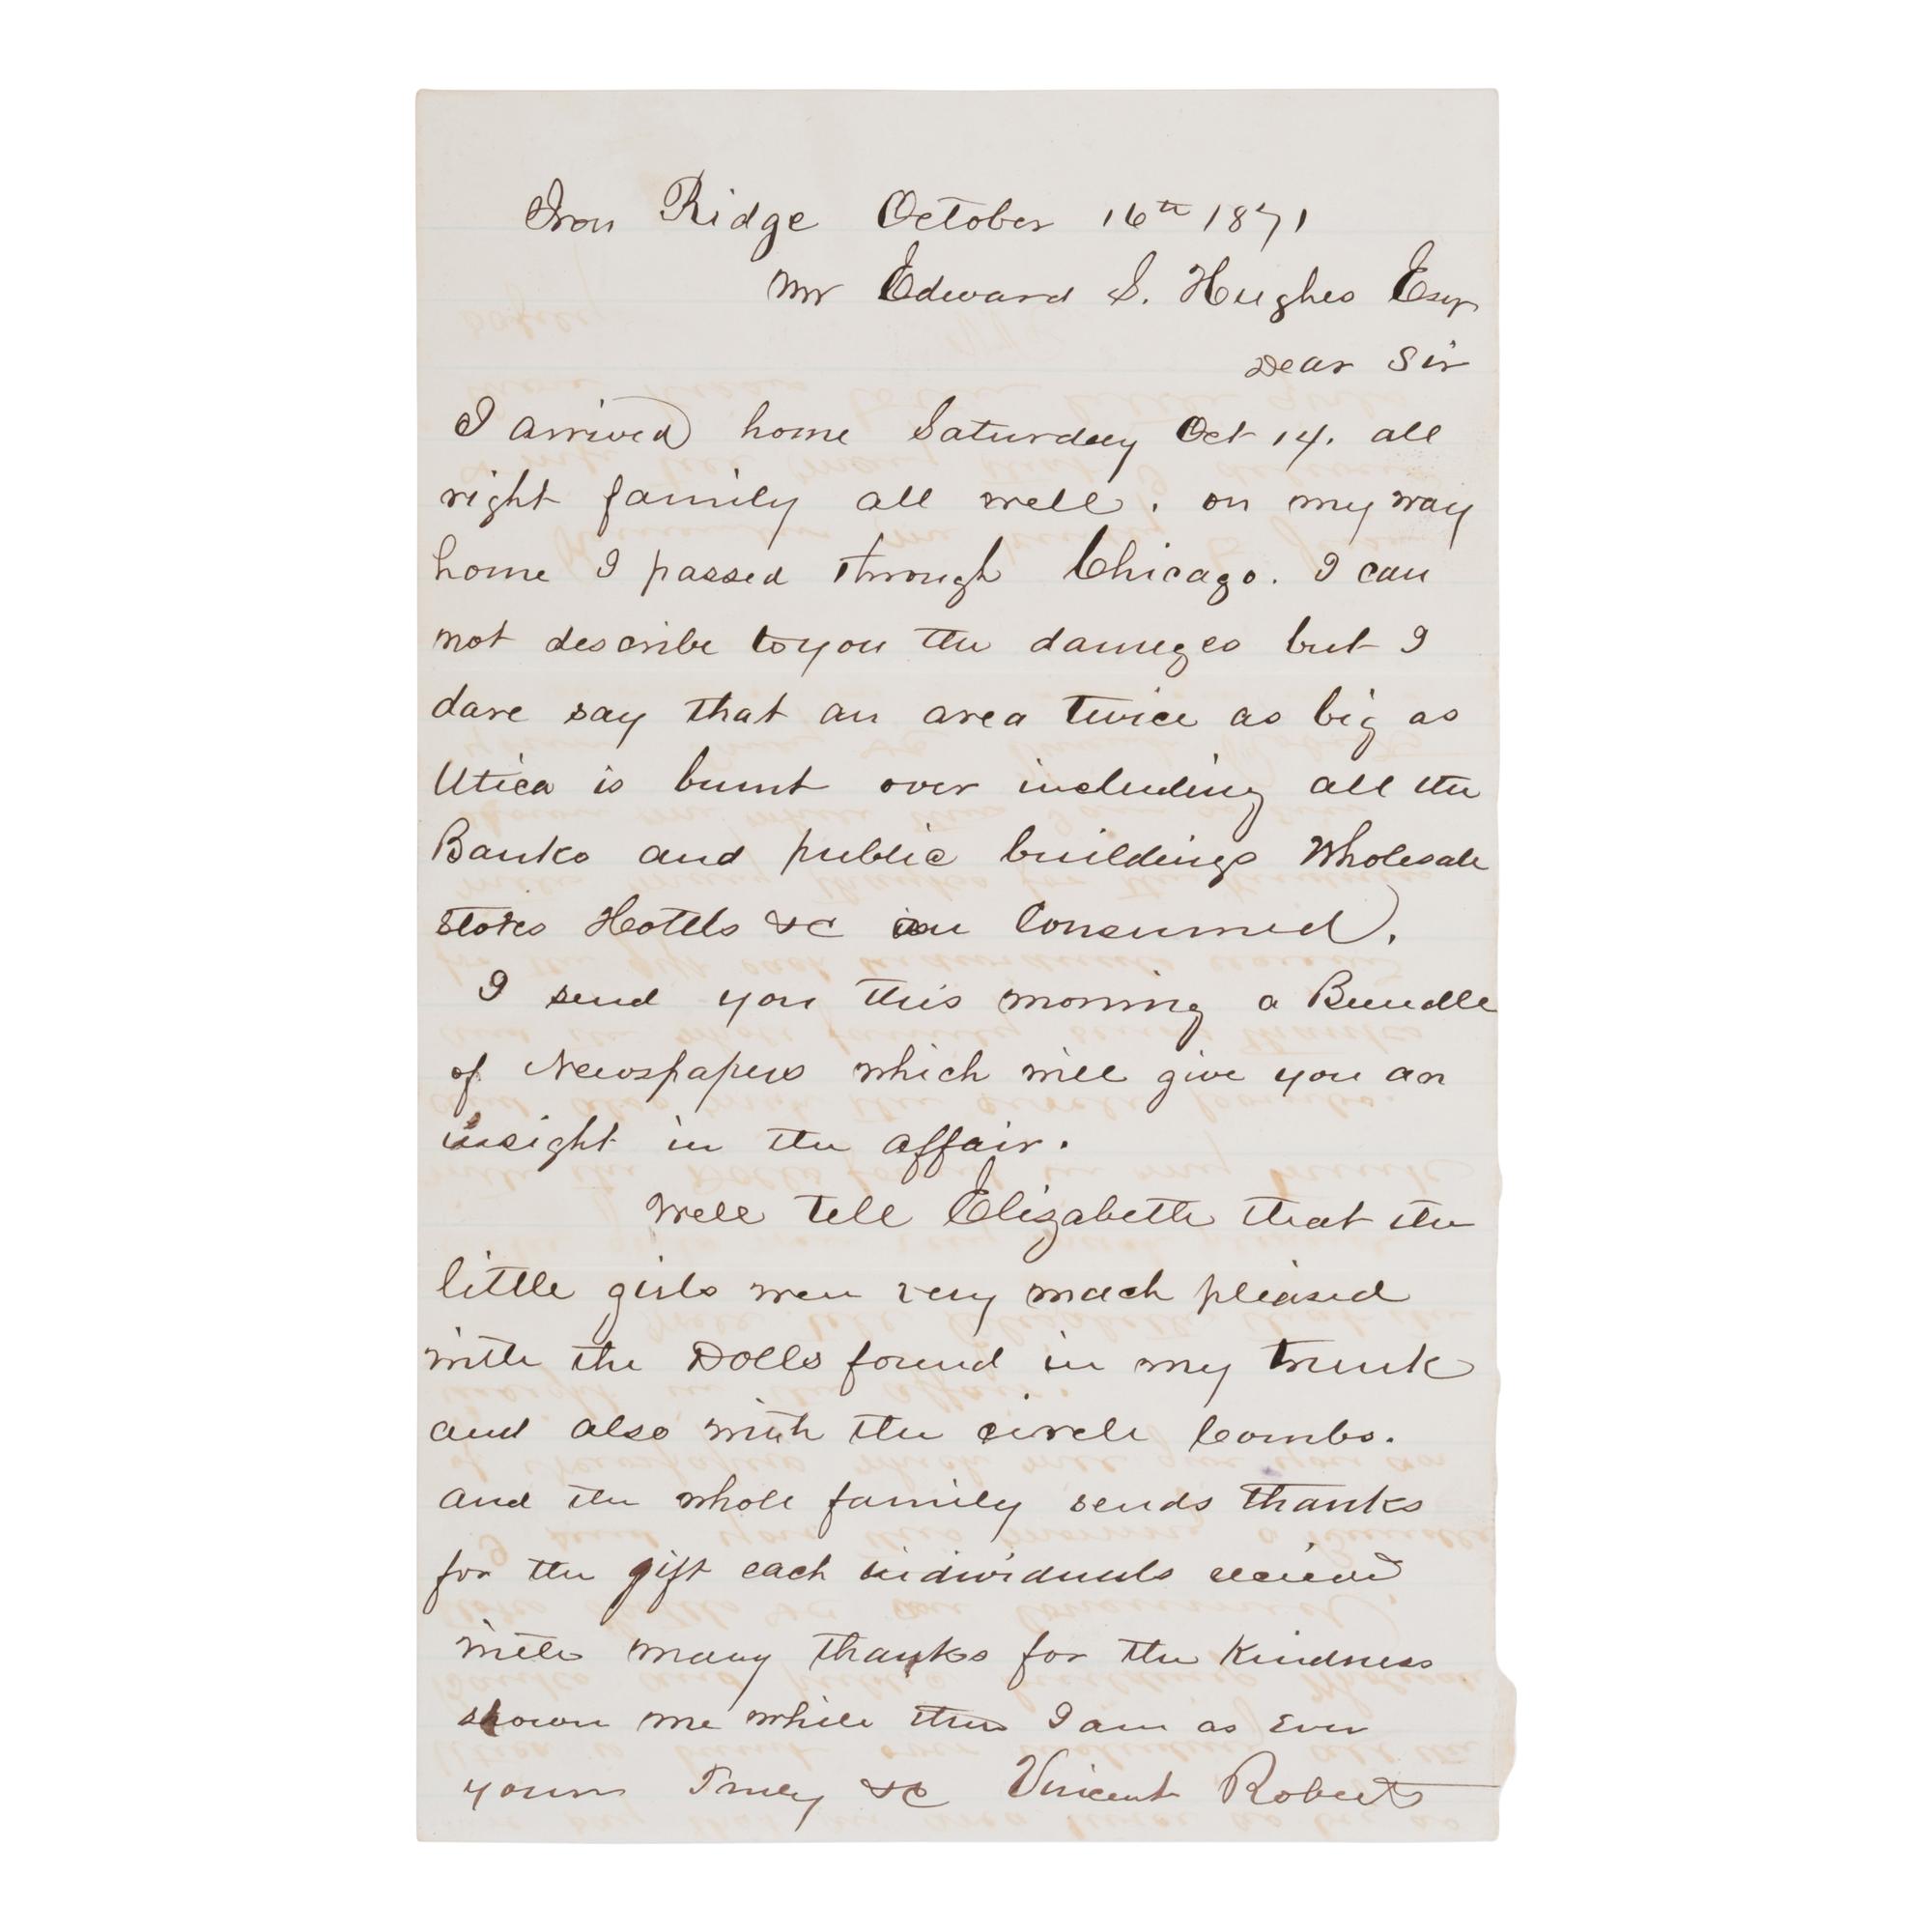 Iron Ridge October 16th 1871
Mr Edward S. Hughes Esqr
Dear Sir
I arrived home Saturday Oct 14. all
right family all well. on my way
home I passed through Chicago. I can
not describe to you the dameges but I
dare say that an area twice as big as
Utica is burnt over including all the
Banks and public buildings Wholesale
Stores Hotels &c are Consumed.
I send you this morning a Bundle
of Newspapers which will give you an
insight in the affair.
Well tell Elizabeth that the
little girls were very much pleased
with the Dolls found in my trunk
and also with the circle Combs.
and the whole family sends thanks
for the gift each individuals recieved
with many thanks for the Kindness
shown me while there I am as Ever
yours Truly &c Vincent Roberts